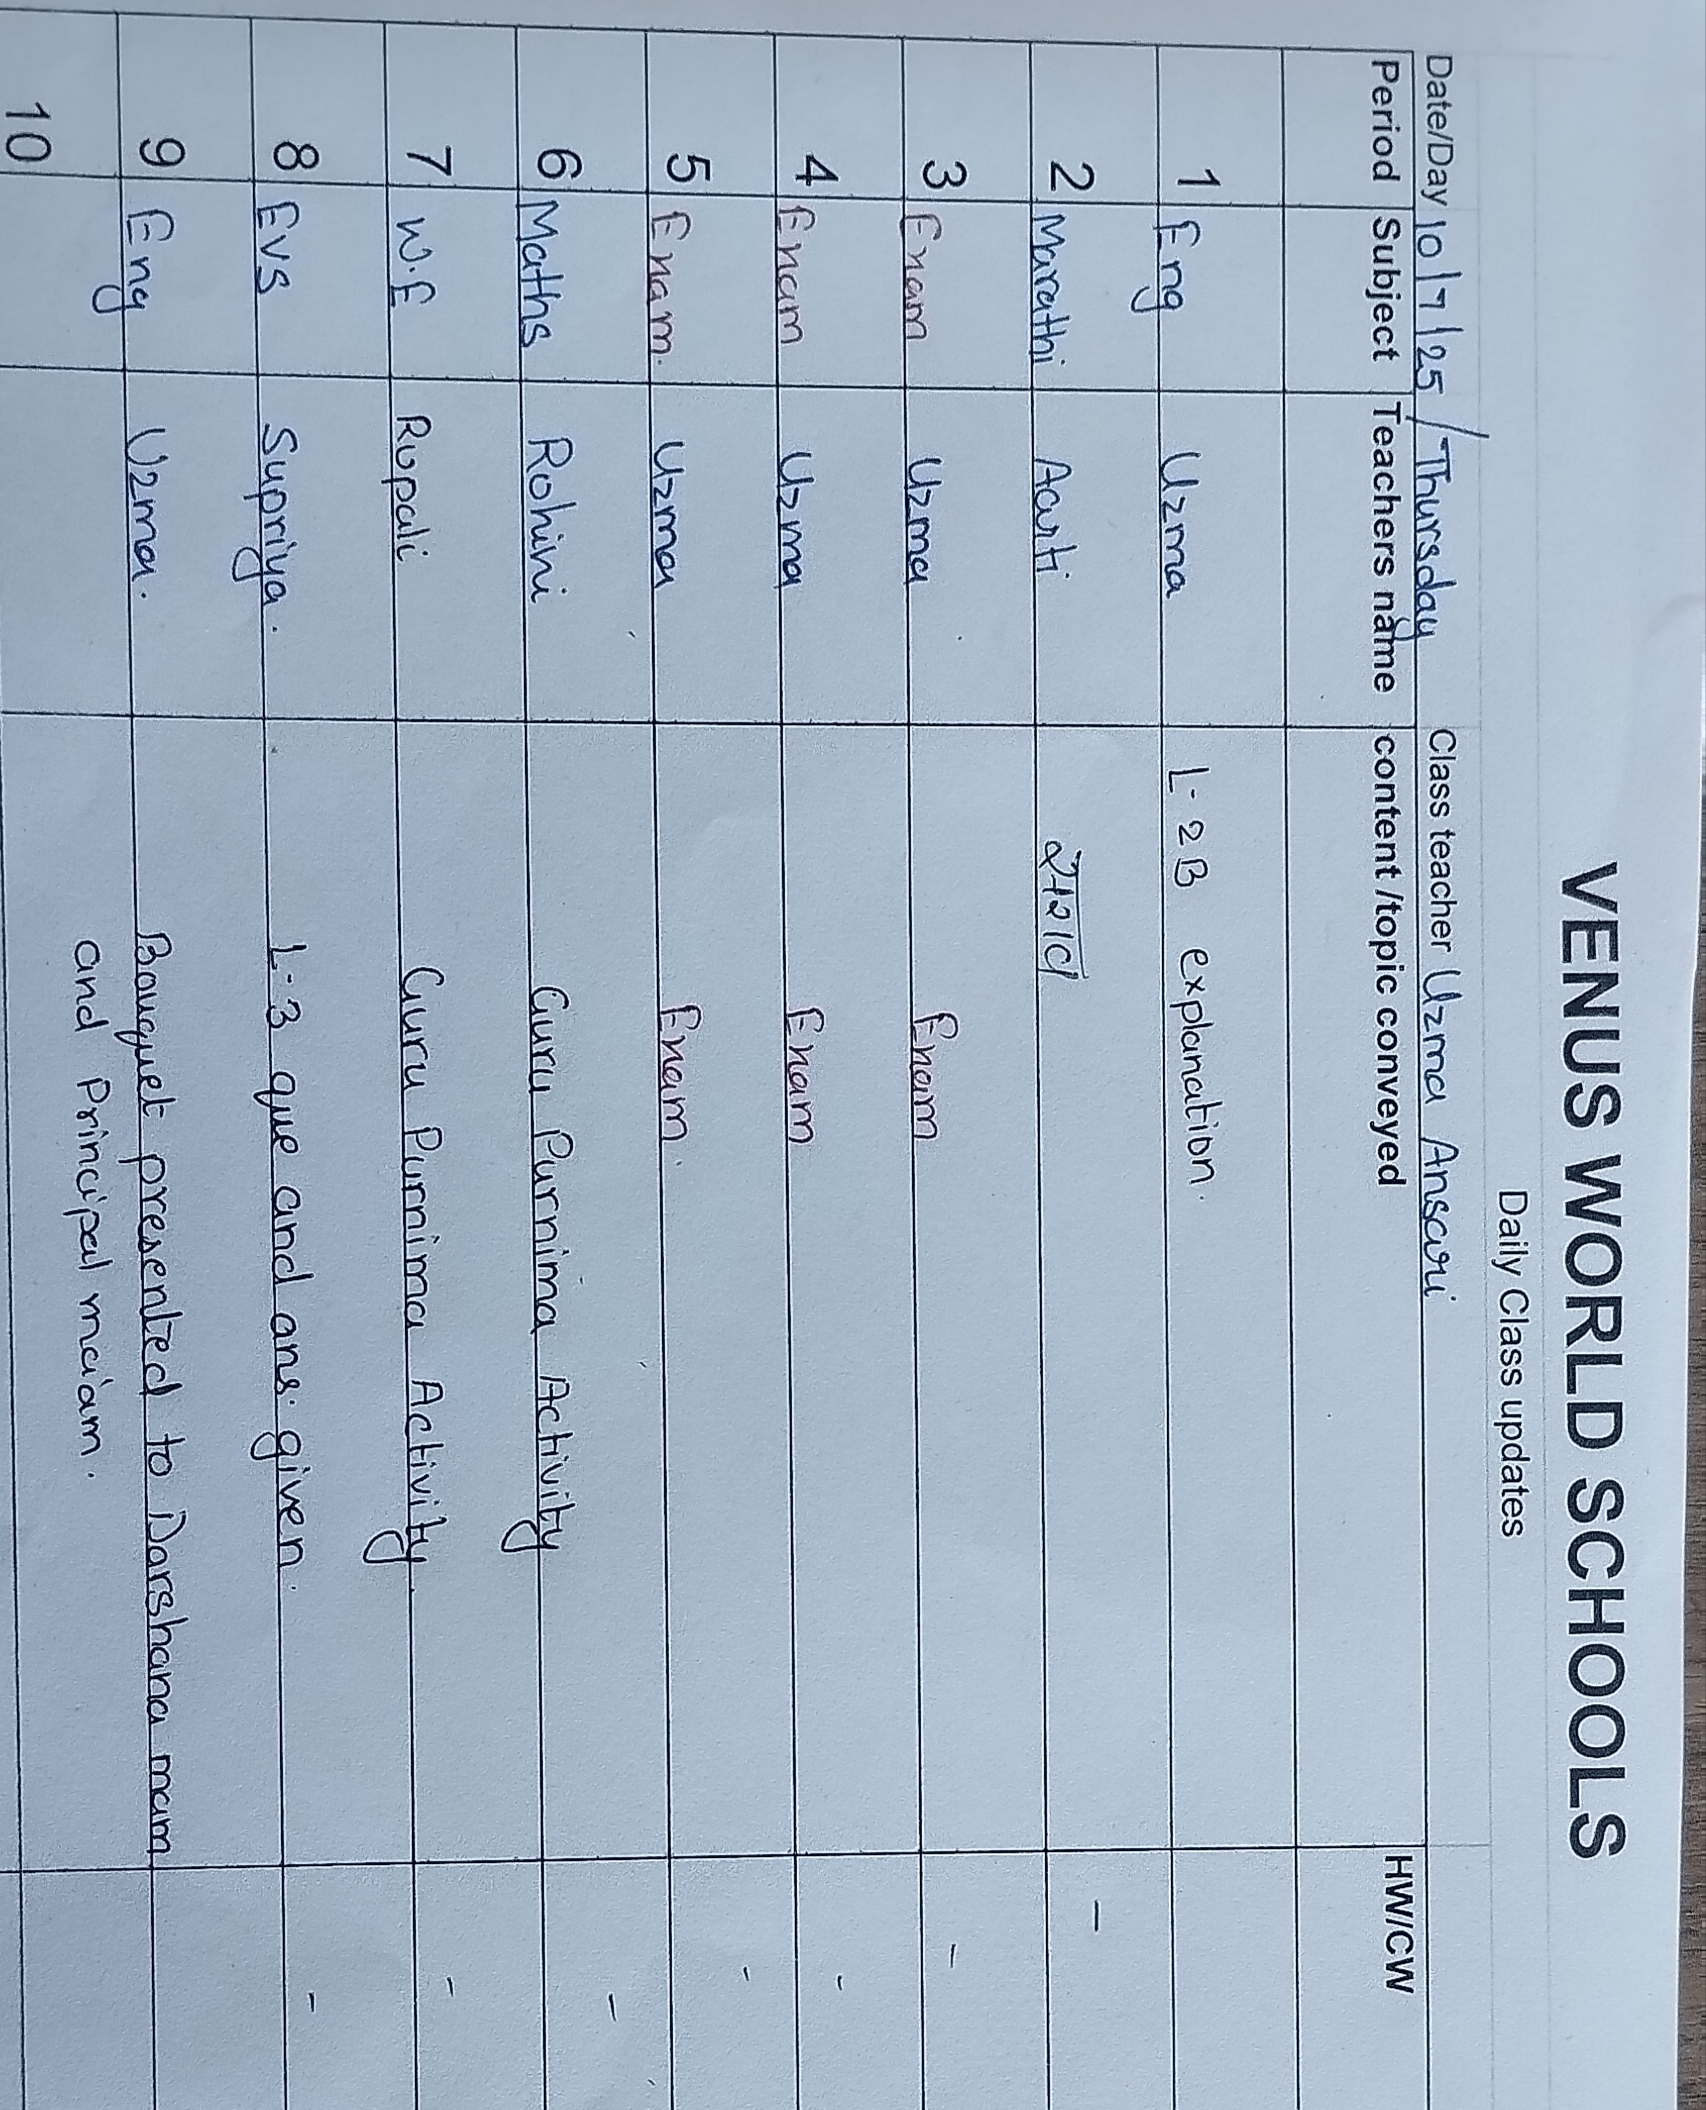 VENUS WORLD SCHOOLS
Daily Class updates
Date/Day 10/7/25/Thursday Class teacher Uzma Ansari
Period Subject Teachers name content /topic conveyed HW/CW
1 Eng Uzma L-2B explanation.
2 Marathi Aarti -
3 Enam Uzma Enam -
4 Enam Uzma Enam -
5 Enam. Uzma Enam. -
6 Maths Rohini Guru Purnima Activity -
7 W.E Rupali Guru Purnima Activity. -
8 EVS Supriya. L-3 que and ans. given. -
9 Eng Uzma. Bouquet presented to Darshana mam
and Principal ma'am.
10